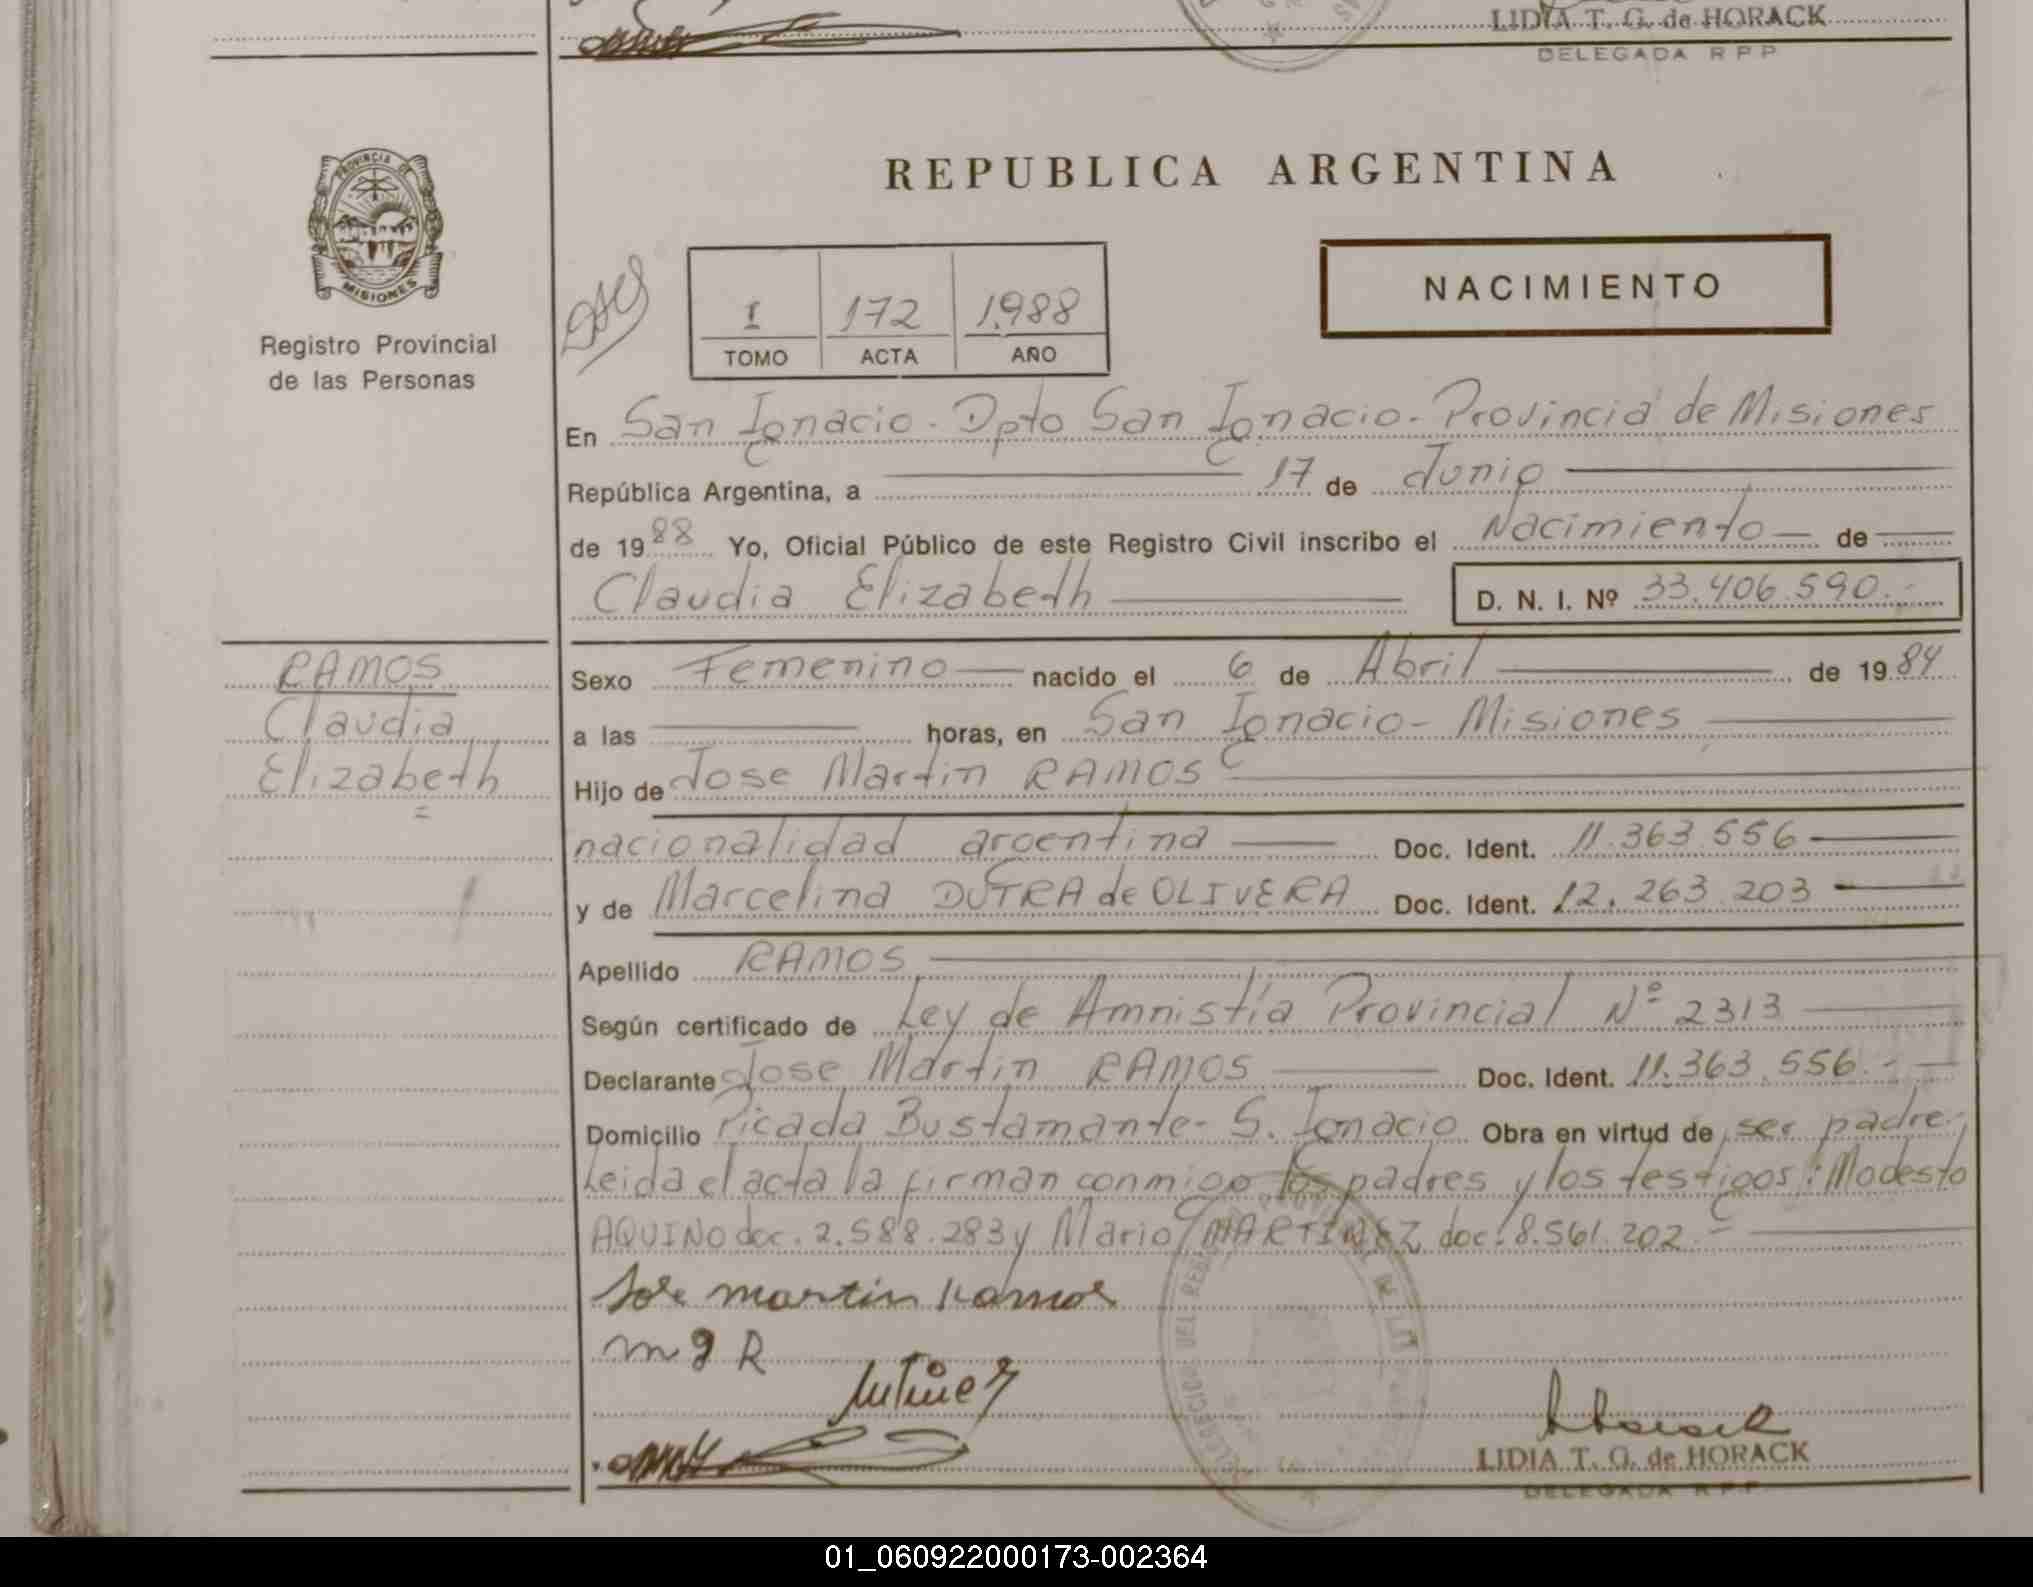 LIDIA T. G. de HORACK
DELEGADA R P P
PROVINCIA DE
MISIONES
Registro Provincial
de las Personas
REPUBLICA ARGENTINA
1 172 1.988
TOMO ACTA AÑO
NACIMIENTO
En San Ignacio - Dpto San Ignacio - Provincia de Misiones
República Argentina, a 17 de Junio
de 1988 Yo, Oficial Público de este Registro Civil inscribo el Nacimiento de
Claudia Elizabeth D. N. I. Nº 33.406.590.-
RAMOS
Claudia
Elizabeth
Sexo Femenino nacido el 6 de Abril de 1984
a las horas, en San Ignacio - Misiones
Hijo de Jose Martin RAMOS
nacionalidad argentina Doc. Ident. 11.363.556
y de Marcelina DUTRA de OLIVERA Doc. Ident. 12.263.203
Apellido RAMOS
Según certificado de Ley de Amnistía Provincial Nº 2313
Declarante Jose Martin RAMOS Doc. Ident. 11.363.556.-
Domicilio Picada Bustamante - S. Ignacio Obra en virtud de ser padre.
Leida el acta la firman conmigo los padres y los testigos: Modesto
AQUINO doc. 2.588.283 y Mario MARTINEZ doc. 8.561.202.-
Jose martin Ramos
m g R
LIDIA T. G. de HORACK
DELEGADA R P P
01_060922000173-002364